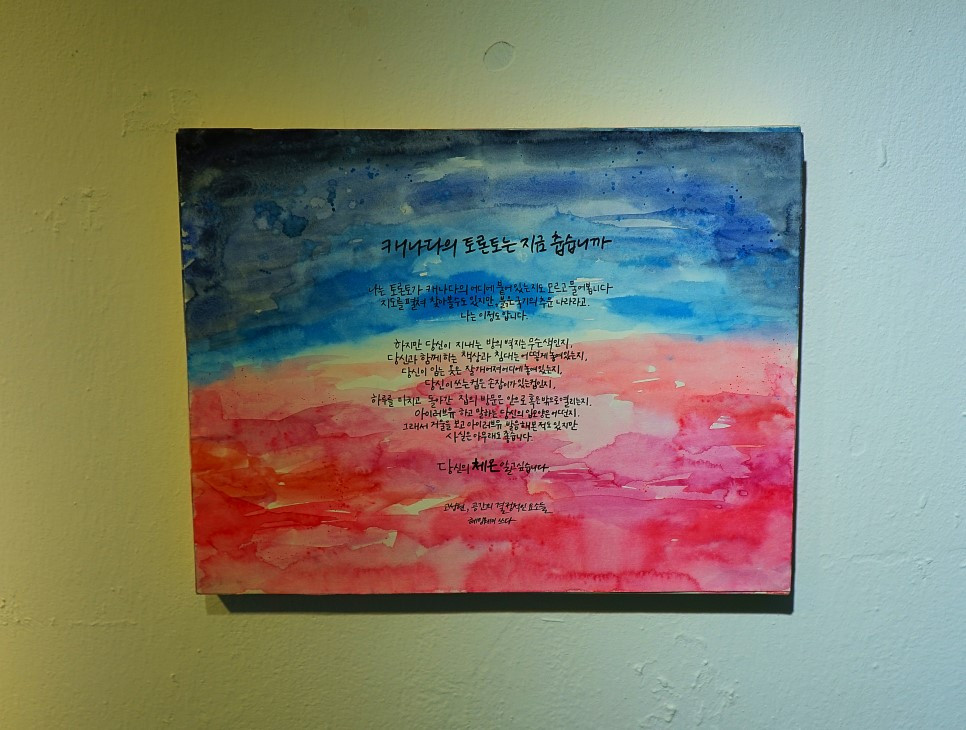 캐나다의 토론토는 지금 춥습니까
나는 토론토가 캐나다의 어디에 붙어 있는지도 모르고 물어봅니다
지도를 펼쳐 찾아볼수도 있지만, 붉은 국기의 추운 나라라고.
나는 이정도 압니다.
하지만 당신이 지내는 방의 벽지는 무슨색인지,
당신과 함께하는 책상과 침대는 어떻게 놓여있는지,
당신이 입는 옷은 잘개어져 어디에 놓여있는지,
당신이 쓰는컵은 손잡이가 있는컵인지,
하루를 마치고 돌아간 집의 방문은 안으로 혹은 밖으로 열리는지.
아이러브유 하고 말하는 당신의 입모양은 어떤지.
그래서 거울을 보고 아이러브유 발음해본적도 있지만
사실은 아무래도 좋습니다.
당신의 체온 알고싶습니다.
공간의 결정적인 요소들
쓰다